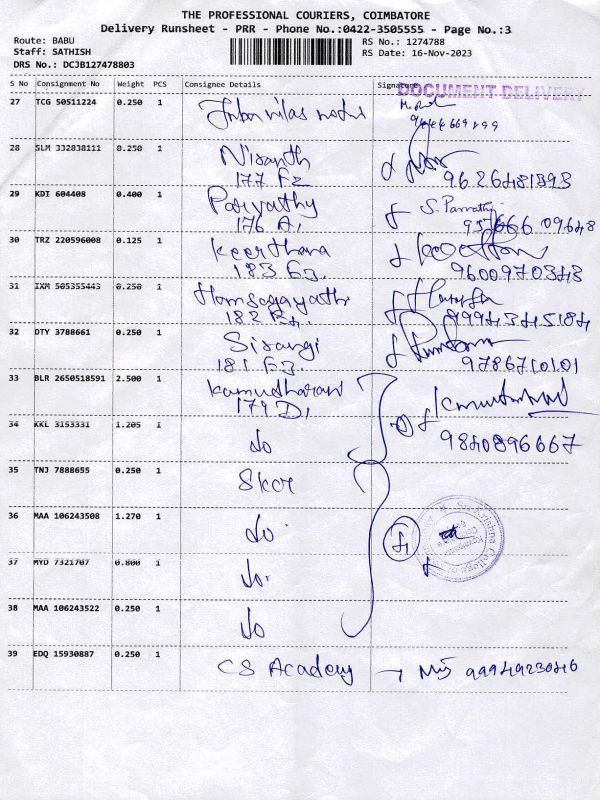 THE PROFESSIONAL COURIERS, COIMBATORE
Delivery Runsheet - PRR - Phone No.:0422-3505555 - Page No.:3
Route: BABU
RS No.: 1274788
Staff: SATHISH
RS Date: 16-Nov-2023
DRS No.: DCJB127478803
S No Consignment No Weight PCS Consignee Details Signature
DOCUMENT DELIVERY
27 TCG 50511224 0.250 1
28 SLM 332838111 0.250 1 Nisanth
177 F2 9626481393
29 KDT 604408 0.400 1 Parvathy S. Parvathy
176 A1
30 TRZ 220596008 0.125 1 Keerthana
183 E3. 9600970343
31 IXM 505355443 0.250 1
182 9994345184
32 DTY 3788661 0.250 1 Sisangi
181 F3. 9786710101
33 BLR 2650518591 2.500 1 Kamudharani
179 D1
34 KKL 3153331 1.205 1 do 9840896667
35 TNJ 7888655 0.250 1 Skcr
36 MAA 106243508 1.270 1 do.
37 MYD 7321707 0.800 1 do.
38 MAA 106243522 0.250 1 do
39 EDQ 15930887 0.250 1 CS Academy 9994923046